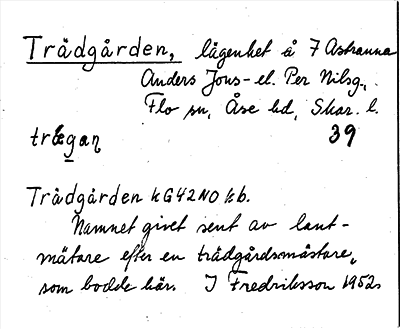 Trädgården, lägenhet å 7 Astranna
Anders Jons- el. Per Nilsg.,
Flo sn, Åse hd, Skar. l.
39
Trädgården kG42NO kb.
Namnet givet sent av lant-
mätare efter en trädgårdsmästare,
som bodde här. J Fredriksson 1952.